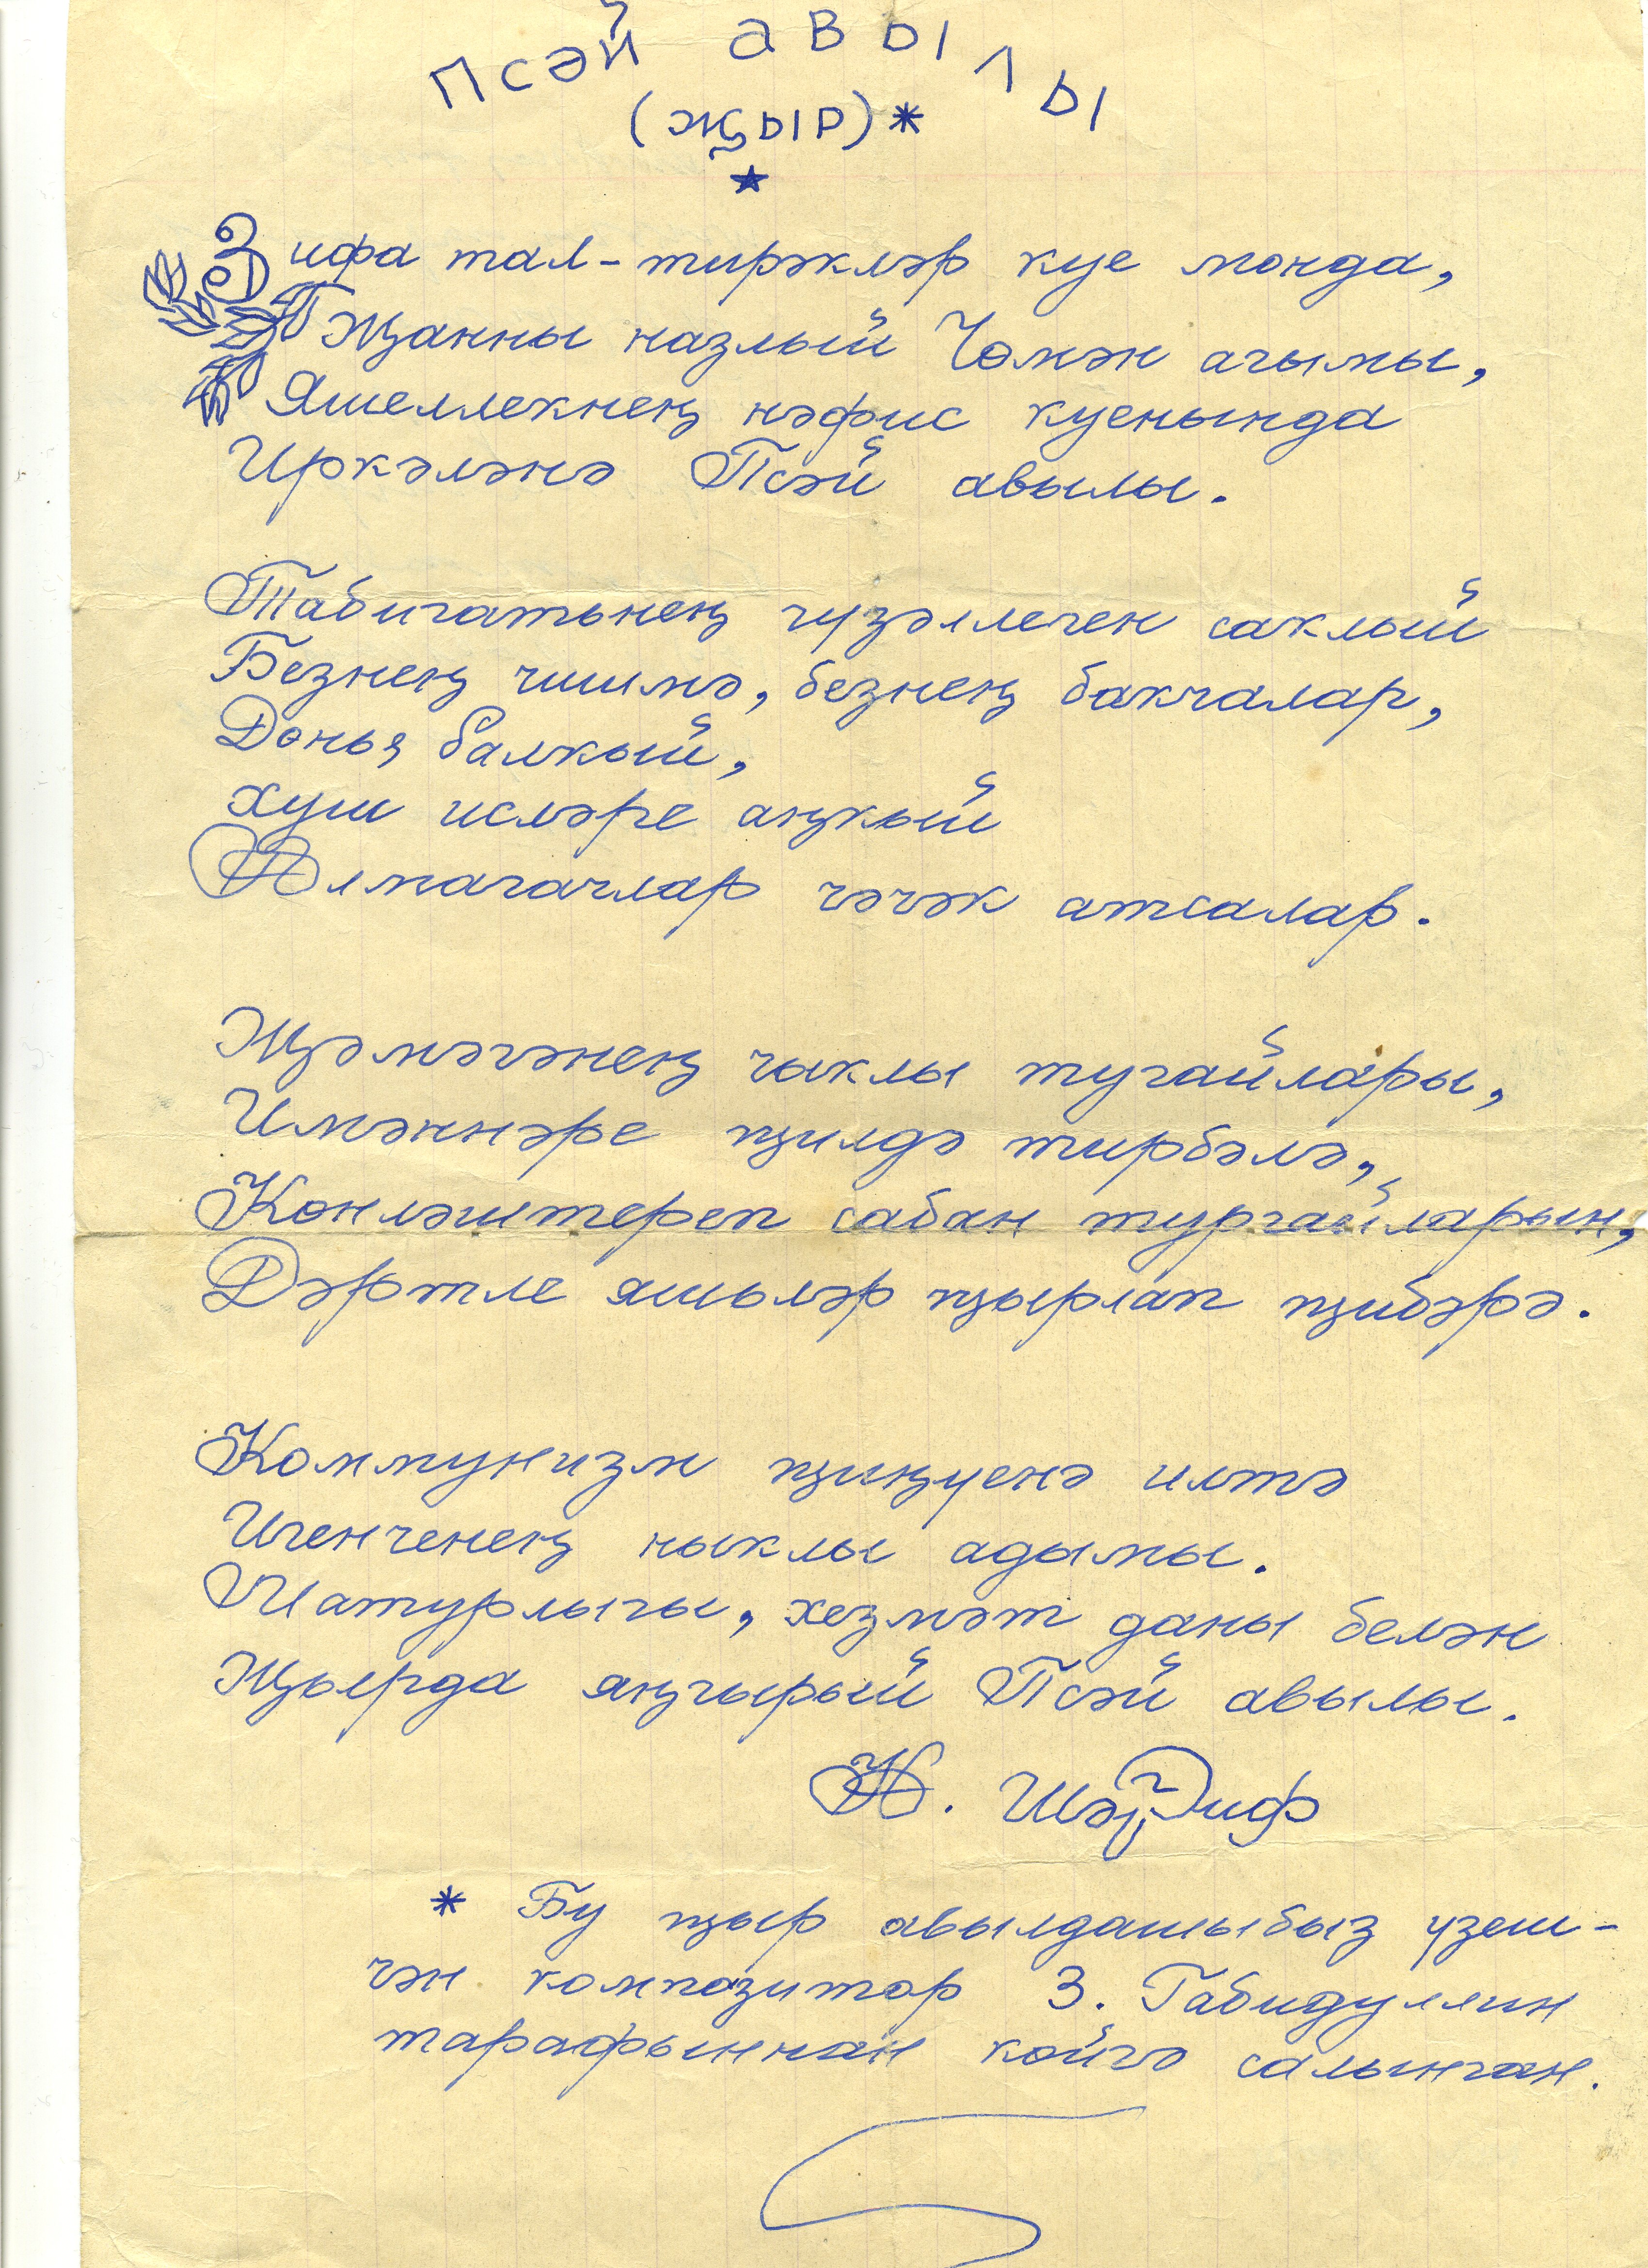 Псәй авылы
(җыр)*
Зифа тал-тирәкләр куе монда,
Җанны назлый Чөмән агымы,
Яшеллекнең нәфис куенында
Иркәләнә Псәй авылы.
Табигатьнең гүзәллеген саклый
Безнең чишмә, безнең бакчалар,
Дөнья балкый,
хуш исләре аңкый
Алмагачлар чәчәк атсалар.
Җәмәгәнең чыклы тугайлары,
Имәннәре җилдә тирбәлә,
Көнләштереп сабан тургайларын,
Дәртле яшьләр җырлап җибәрә.
Коммунизм җиңүенә илтә
Игенченең ныклы адымы.
Матурлыгы, хезмәт даны белән
Җырда яңгырый Псәй авылы.
Ш
* Бу җыр авылдашыбыз үзеш-
чән композитор З. Габидуллин
тарафыннан көйгә салынган.